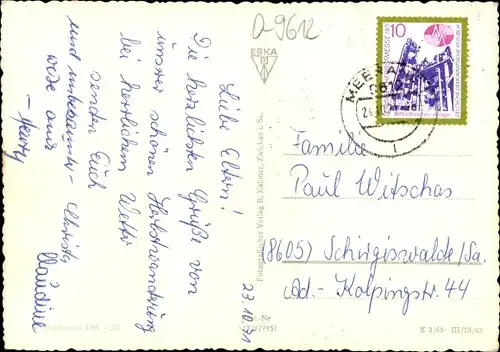 O-9612
ERKA
10
MESSE 1971
MEERA
Liebe Eltern!
Die herzlichsten Grüße von
unsrer schönen Herbstwanderung
bei herrlichem Wetter
senden Euch
und unbekannter-
Christa
Claudine
23.10.71
Fotografischer Verlag R. Kallmer, Zwickau i. Sa.
Familie
Paul Witschas
(8605) Schirgiswalde/Sa.
Ad.-Kolpingstr. 44
K 2/63- III/18/63